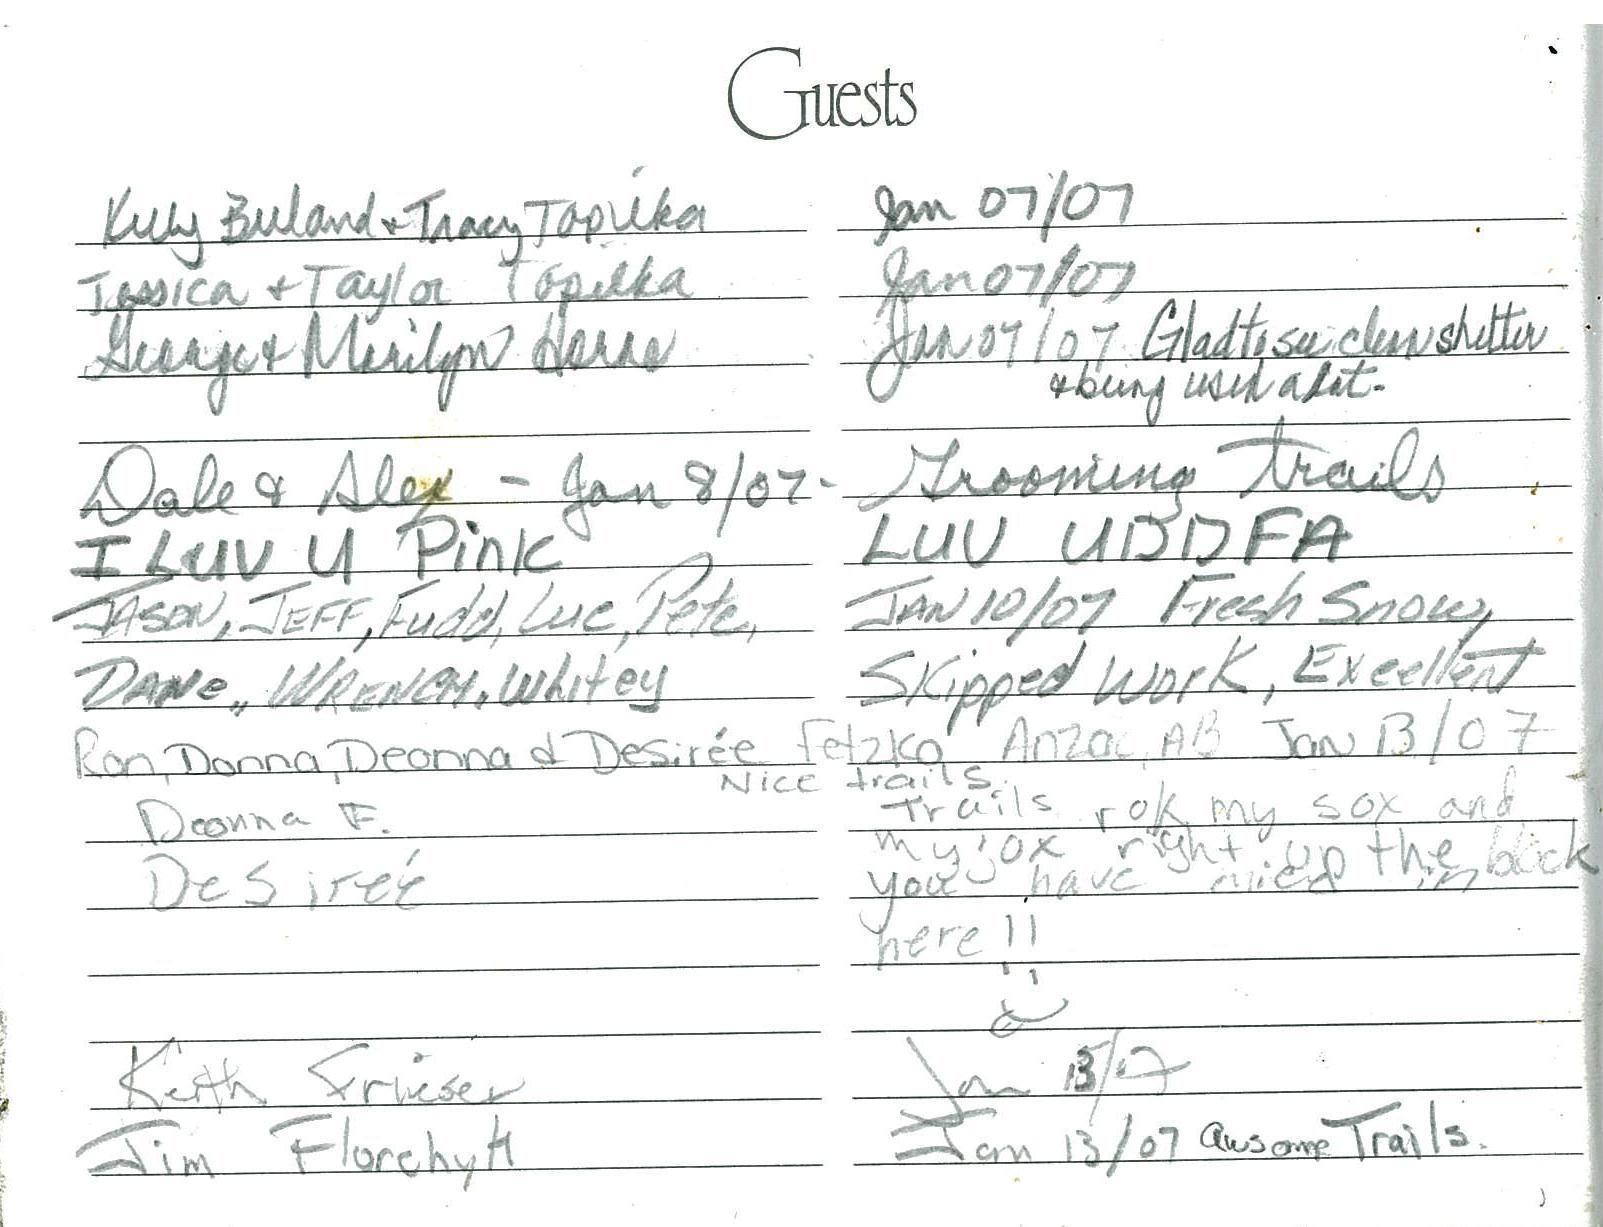 Guests
Kelly Buland & Tracy Topilka Jan 07/07
Jessica & Taylor Topilka Jan 07/07
George & Marilyn Jan 07/07 Glad to see clean shelter
& being used a lot.
Dale & Alex - Jan 8/07 - Grooming Trails
I LUV U Pink LUV UDDFA
JASON, JEFF, Fudd, Luc, Pete, JAN 10/07 Fresh Snow,
DANe,, WRENCH, Whitey Skipped Work, Excellent
Ron, Donna, Deonna & Desirée Fetzko Anzac, AB Jan 13/07
Nice trails
Deonna F. Trails rok my sox and
my jox right up the block
Desireé you have in
here!!
Keith Frieser Jan 13/07
Jim Jan 13/07 Awsome Trails.